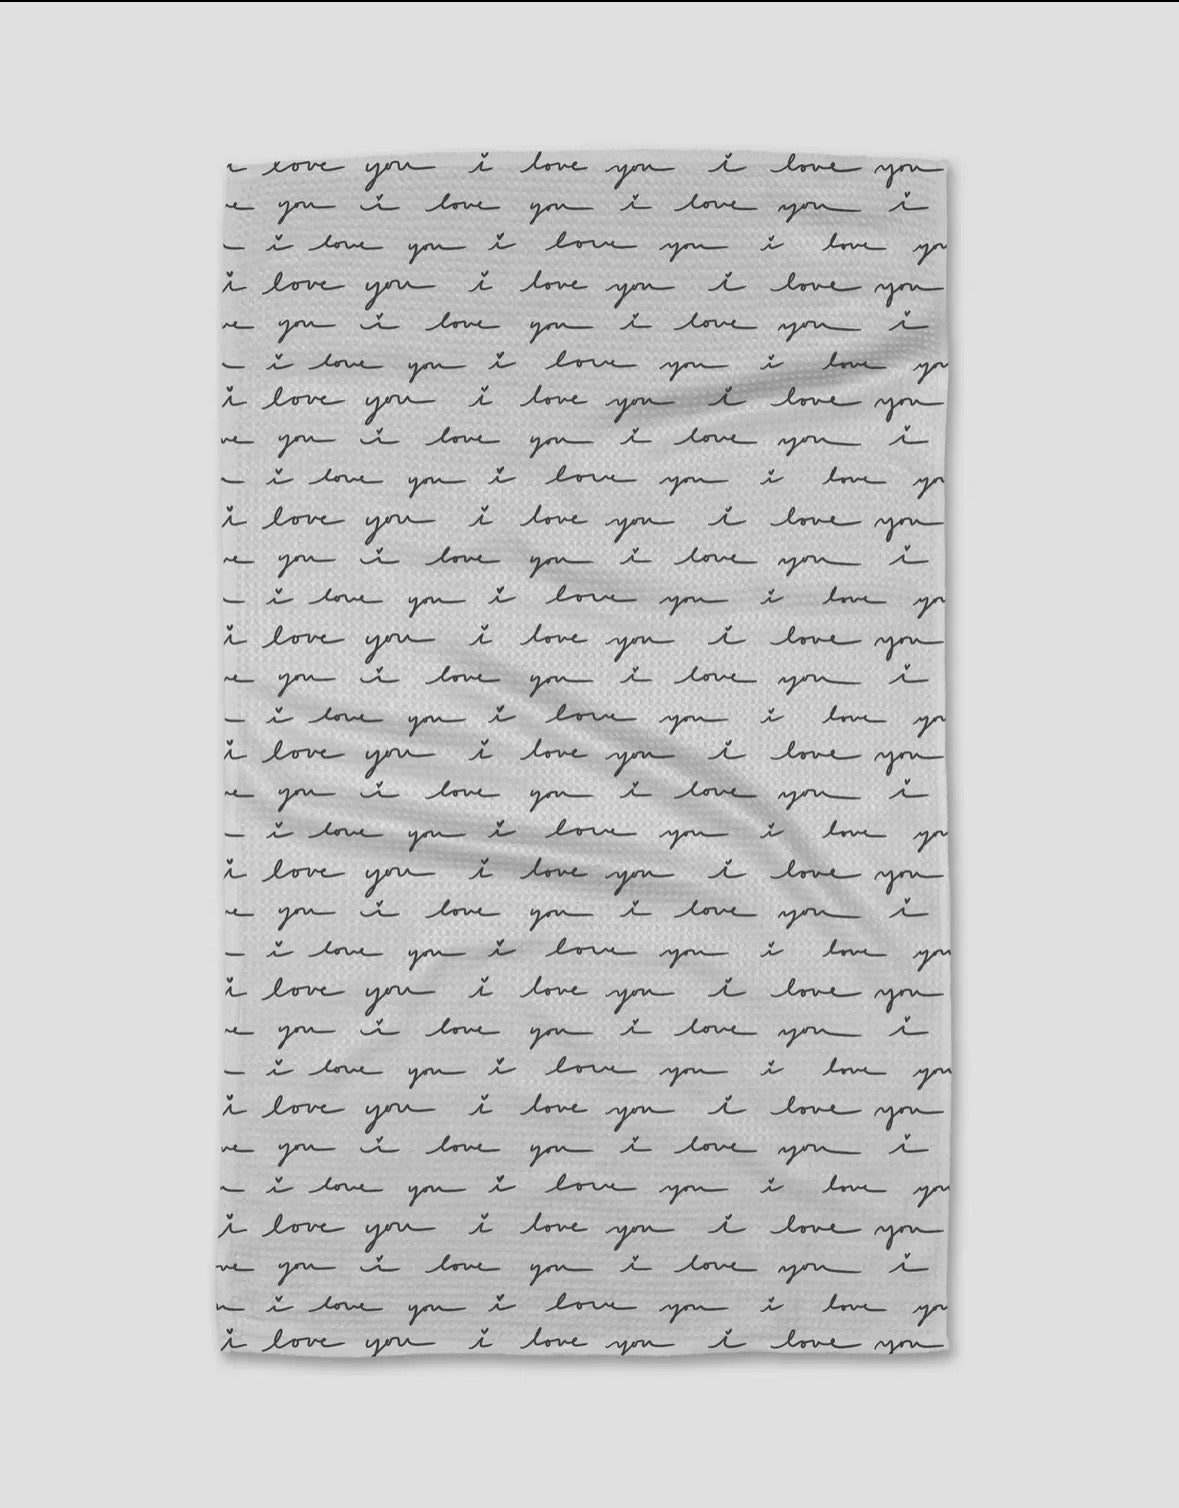 i love you i love you i love you
e you i love you i love you i
i love you i love you i love yo
i love you i love you i love you
ve you i love you i love you i
i love you i love you i love yo
i love you i love you i love you
ve you i love you i love you i
i love you i love you i love yo
i love you i love you i love you
e you i love you i love you i
i love you i love you i love yo
i love you i love you i love you
e you i love you i love you i
i love you i love you i love yo
i love you i love you i love you
e you i love you i love you i
i love you i love you i love yo
i love you i love you i love you
e you i love you i love you i
i love you i love you i love you
i love you i love you i love you
e you i love you i love you i
i love you i love you i love you
i love you i love you i love you
ve you i love you i love you i
i love you i love you i love yo
i love you i love you i love you
ve you i love you i love you i
i love you i love you i love yo
i love you i love you i love you